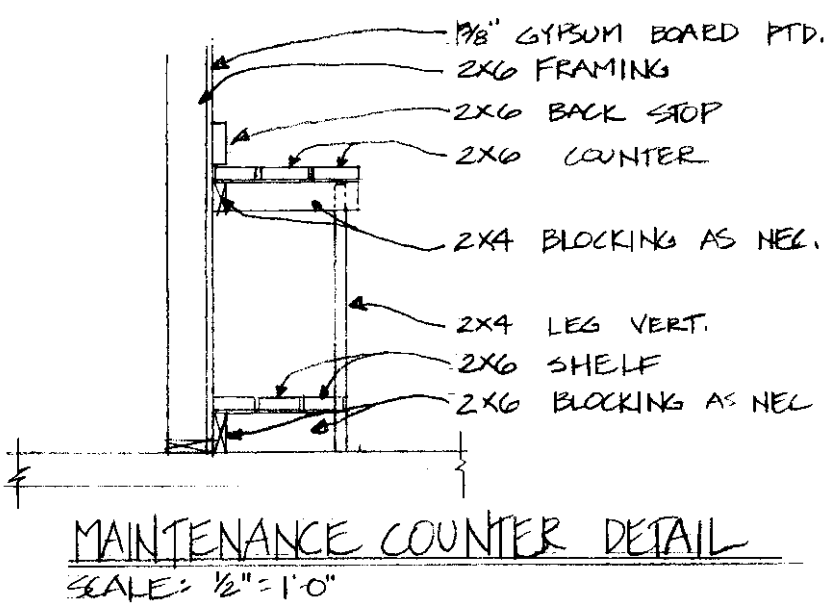 5/8" GYPSUM BOARD PTD.
2X6 FRAMING
2X6 BACK STOP
2X6 COUNTER
2X4 BLOCKING AS NEC.
2X4 LEG VERT.
2X6 SHELF
2X6 BLOCKING AS NEC
MAINTENANCE COUNTER DETAIL
SCALE: 1/2" = 1'-0"